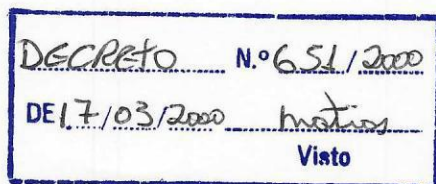 DECRETO N.º 651/2000
DE 17/03/2000 matias
Visto